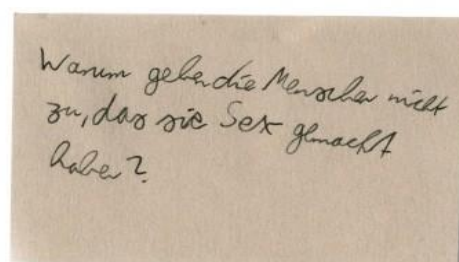 Warum geben die Menschen nicht
zu, das sie Sex gemacht
haben?